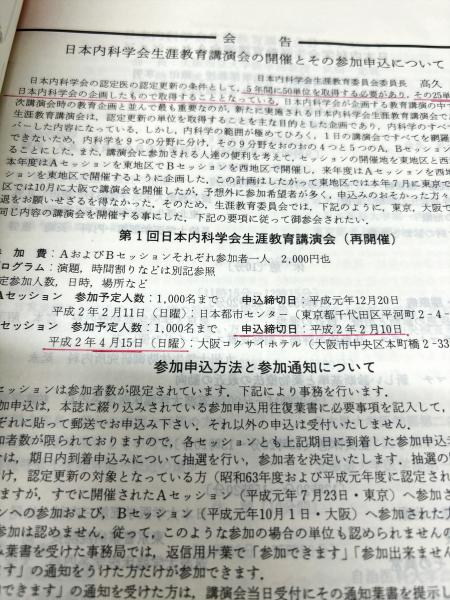 会告
日本内科学会生涯教育講演会の開催とその参加申込について
日本内科学会生涯教育委員会委員長 高久
日本内科学会の認定医の認定更新の条件として，5年間に50単位を取得する必要があり，その25単
日本内科学会の企画したもので取得することとなっている．日本内科学会が企画する教育講演の中で
次講演会時の教育企画と並んで最も重要なのが，新たに実施される日本内科学会生涯教育講演会で
生涯教育講演会は，認定更新の単位を取得することを主な目的とした企画であり，内科学のすべて
バーした内容になっている．しかし，内科学の範囲が極めてひろく，1日の講演会ですべてを網羅
できないため，内科学を9つの分野に分け，その9分野をおのおの4つと5つのA，Bセッション
ることにした．また，講演会に参加される人達の便利を考えて，セッションの開催地を東地区と西
本年度はAセッションを東地区でBセッションを西地区で開催し，来年度はAセッションを西
ションを東地区で開催するように企画した．この計画はしたがって東地区では本年7月に東京で
区では10月に大阪で講演会を開催したが，予想外に参加希望者が多く，申込みのおそかった方々
退をお願いせざるを得なかった．そのため，生涯教育委員会では，下記のように，東京，大阪で
同じ内容の講演会を開催する事にした．下記の要項に従って御参会されたい．
第1回日本内科学会生涯教育講演会（再開催）
参加費：AおよびBセッションそれぞれ参加者一人 2,000円也
ログラム：演題，時間割りなどは別記参照
定参加人数，日時，場所など
Aセッション 参加予定人数：1,000名まで 申込締切日：平成元年12月20日
平成2年2月11日（日曜）：日本都市センター（東京都千代田区平河町2-4-
セッション 参加予定人数：1,000名まで 申込締切日：平成2年2月10日
平成2年4月15日（日曜）：大阪コクサイホテル（大阪市中央区本町橋2-33
参加申込方法と参加通知について
セッションは参加者数が限定されています．下記により事務を行います．
加申込は，本誌に綴り込みされている参加申込用往復葉書に必要事項を記入して，
ぞれに貼って郵送でお申込み下さい．それ以外の申込は受付いたしません．
加者数が限られておりますので，各セッションとも上記期日に到着した参加申込
は，期日内到着申込みについて抽選を行い，参加者を決定いたします．抽選の
け，認定更新の対象となっている方（昭和63年度および平成元年度に認定され
ますが，すでに開催されたAセッション（平成元年7月23日・東京）へ参加さ
ンへの参加および，Bセッション〔（平成元年10月1日・大阪）へ参加された方
参加は認めません．従って，このような参加の場合の単位も認められませんの
み葉書を受けた事務局では，返信用片葉で「参加できます」「参加出来ません
ます」の通知をうけた方だけが参加できます．
できます」の通知を受けた方は，講演会当日受付にその通知葉書を提示し